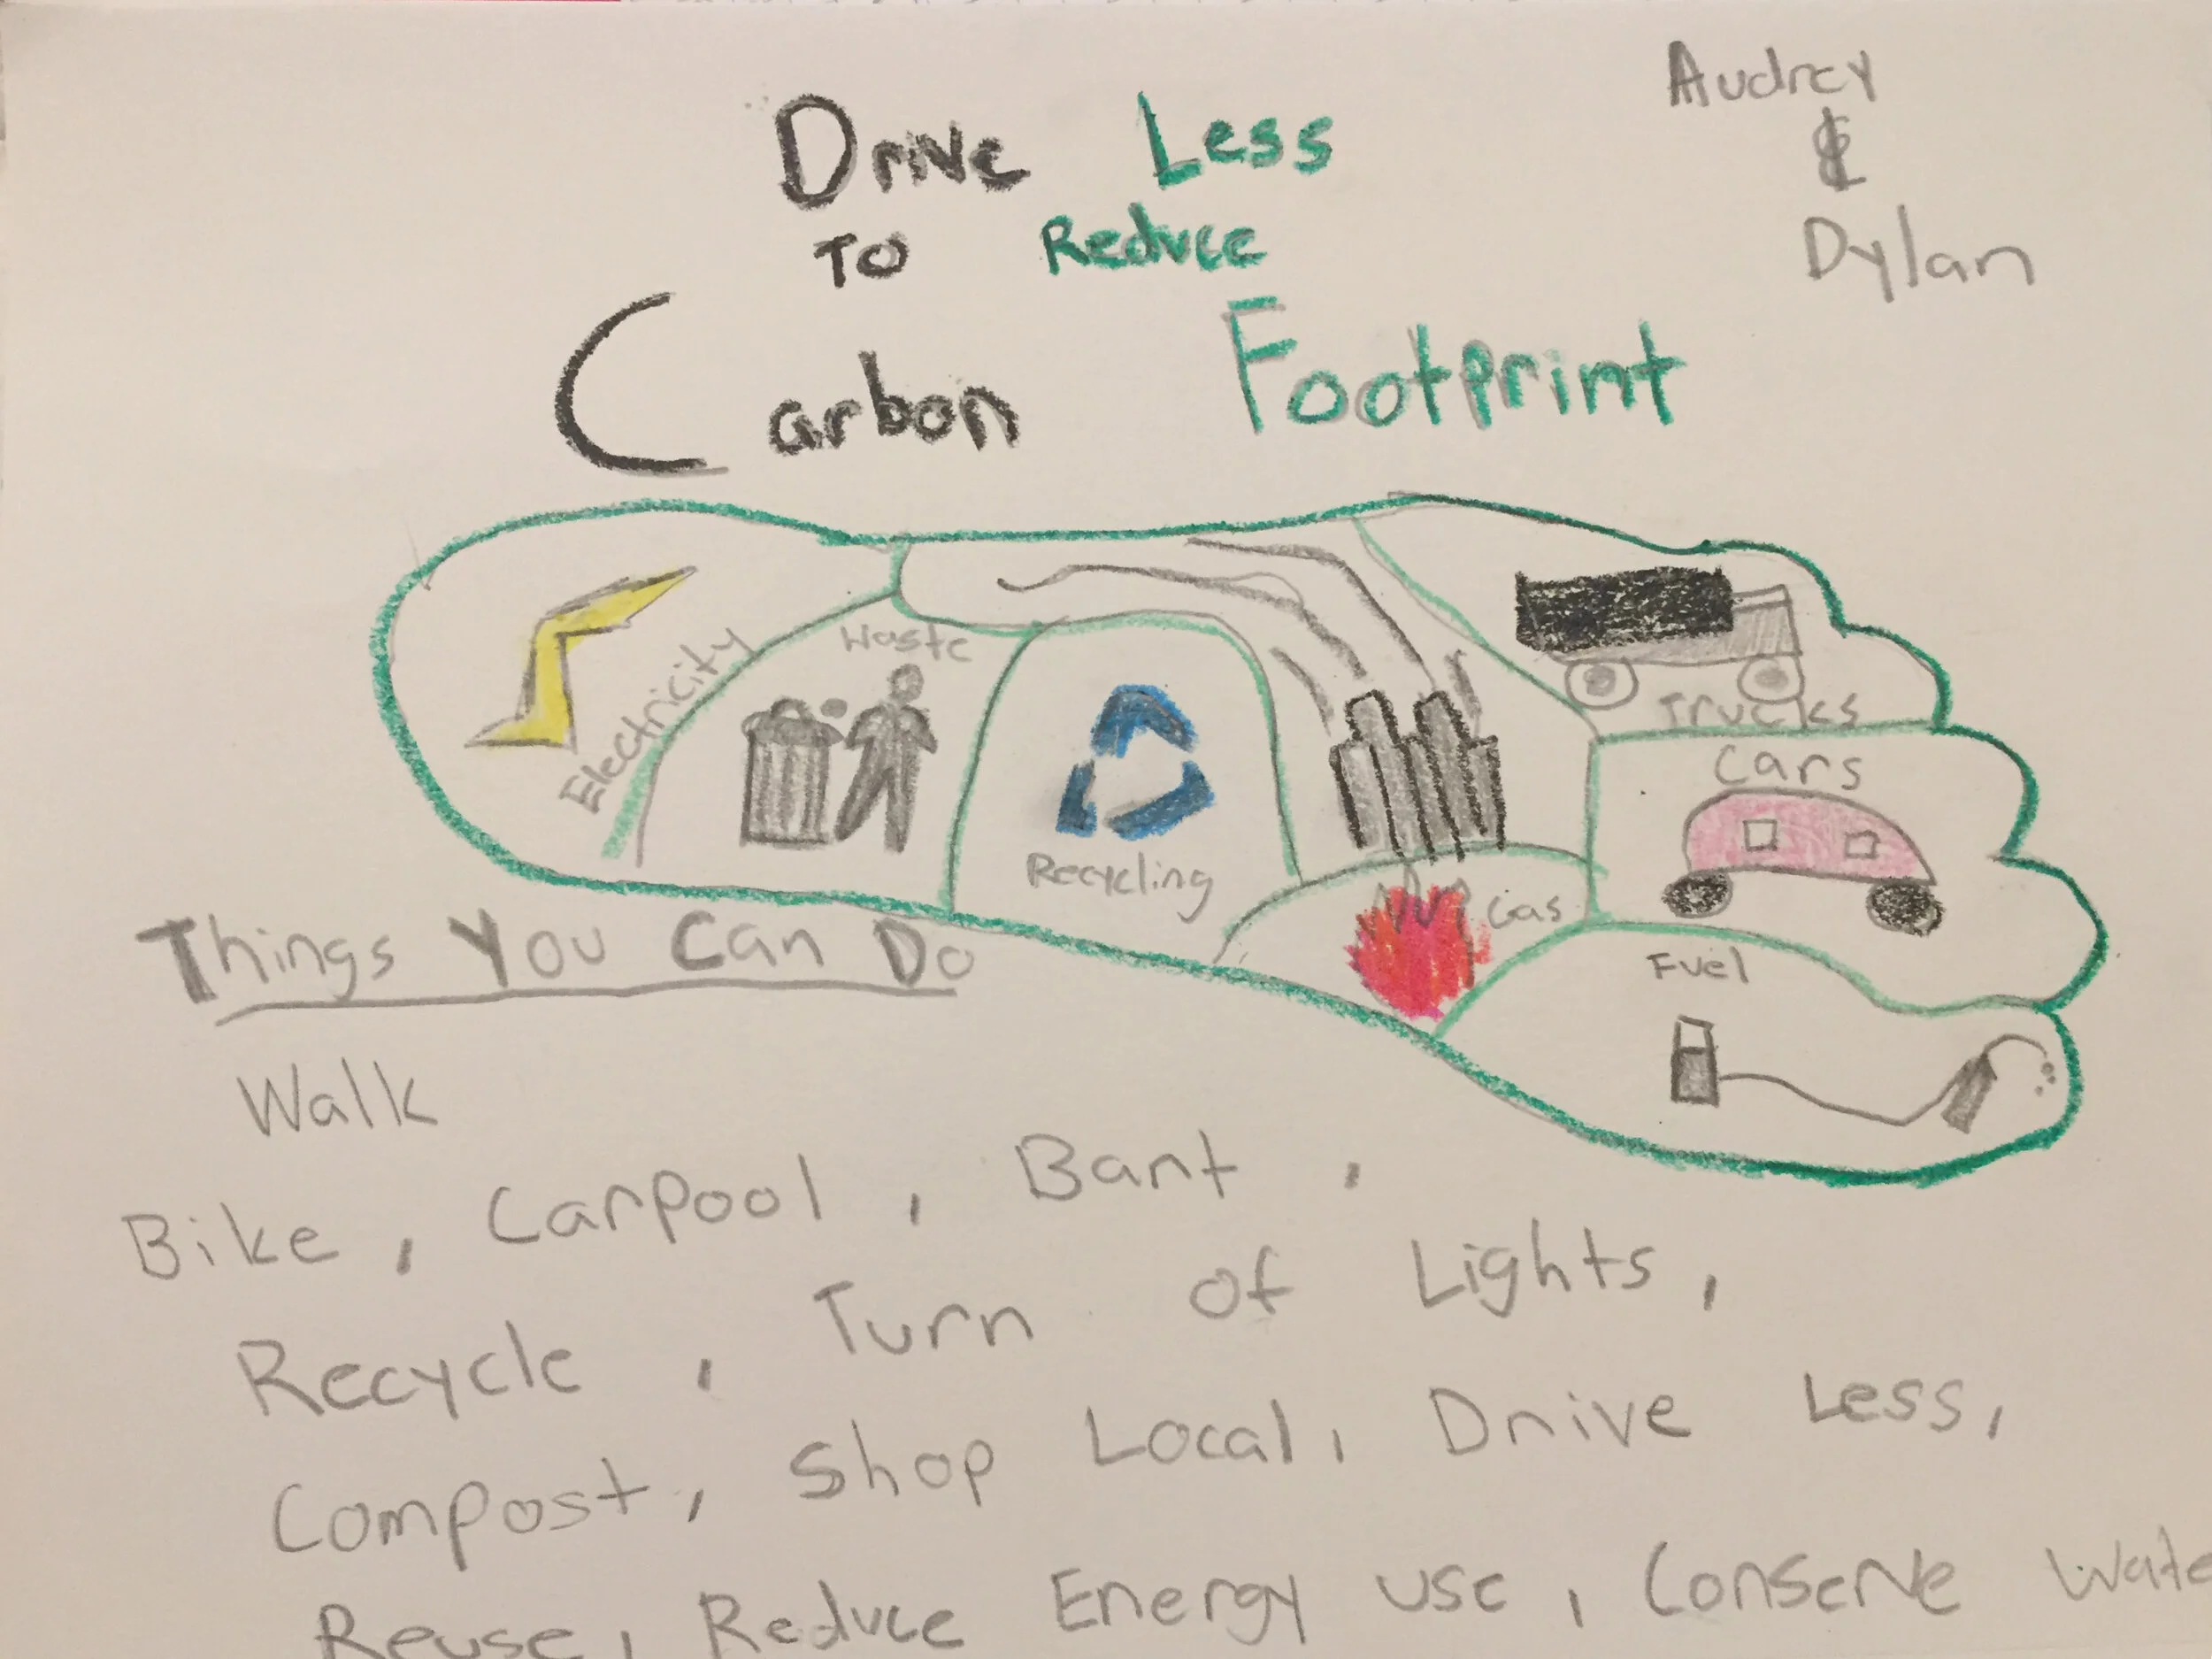 Audrey
&
Dylan
Drive Less
To Reduce
Carbon Footprint
Electricity
Waste
Recycling
Gas
Trucks
Cars
Fuel
Things You Can Do
Walk
Bike, Carpool, Bant,
Recycle, Turn of Lights,
Compost, Shop Local, Drive Less,
Reuse, Reduce Energy use, Conserve Wate